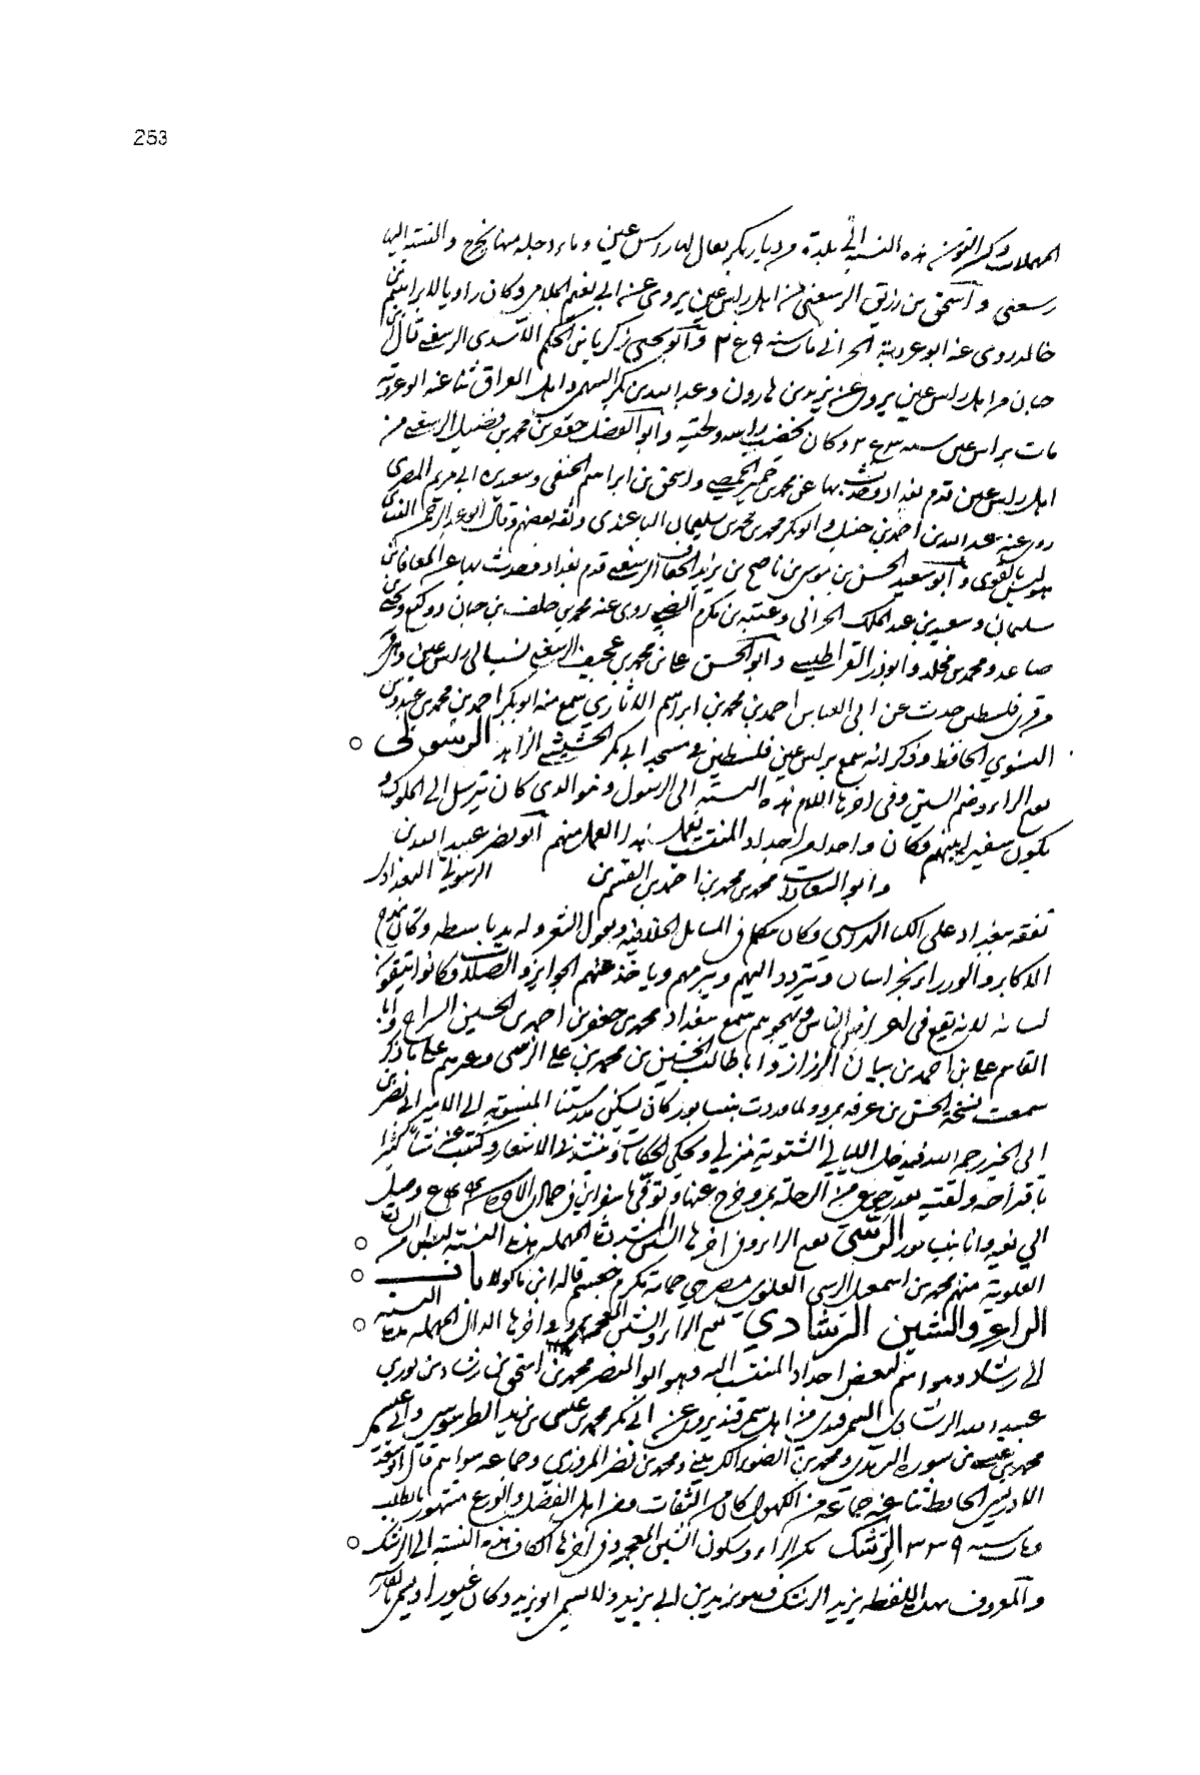 253
المهملات وكسر النون هذه النسبة الى بلدة من ديار بكر يقال لها راس عين وماء دجلة منها يخرج والنسبة اليها
رسعني و اسحق بن رزيق الرسعني من اهل راس عين يروي عن ابي نعيم الملاى وكان راويا لابراهيم بن
خالد روى عنه ابو عروبة الحراني مات سنة ٢٤٩ وابو يحيى زكريا بن الحكم الاسدي الرسعني قال ابن
حبان من اهل راس عين يروي عن يزيد بن هارون وعبد الله بن بكر السهمي واهل العراق ثنا عنه ابو عروبة
مات براس عين سنة ٢٥٣ وكان يخضب راسه ولحيته وابو الفضل جعفر بن محمد بن الفضيل الرسعني من
اهل راس عين قدم بغداد وحدث بها عن محمد بن حمير الحمصي واسحق بن ابراهيم الحنفي وسعيد بن ابي مريم المصري
روى عنه عبد الله بن احمد بن حنبل وابو بكر محمد بن محمد بن سليمان الباغندي وثقه بعضهم وقال ابو عبد الرحمن النسائي
ليس بالقوي و ابو سعيد الحسن بن موسى بن ناصح بن يزيد الخفاف الرسعني قدم بغداد وحدث بها عن المعافى بن
سليمان وسعيد بن عبد الملك الحراني وعقبة بن مكرم الضبي روى عنه محمد بن خلف بن حيان وكيع ويحيى بن
صاعد ومحمد بن مخلد وابو ذر القراطيسي وابو الحسن علي بن محمد بن الرسعني نسب الى راس عين وهي
من قرى فلسطين حدث عن ابي العباس احمد بن محمد بن ابراهيم سمع منه ابو بكر احمد بن محمد بن عبدوس
النسوي الحافظ وذكر انه سمع براس عين فلسطين في مسجد ابي بكر الزاهد الرسولي ○
بفتح الراء وضم السين وفي اخرها اللام هذه النسبة الى الرسول وهو الذي كان يترسل الى الملوك و
يكون سفيرا بينهم وكان واحد من اجداد المنتسب يعمل هذا العمل منهم ابو نصر عبيد الله بن
وابو السعادات محمد بن محمد بن احمد بن القسم بن الرسولي البغدادي
تفقه ببغداد على الكيا الهراسي وكان يتكلم في المسائل الخلافية ويقول الشعر وله يد باسطة وكان يمدح
الاكابر والوزراء بخراسان ويتردد اليهم ويبرمهم وياخذ عنهم الجوايز والصلات وكانوا يتقون
لسانه لانه يقع في اعراض الناس ويهجوهم سمع ببغداد محمد بن جعفر بن احمد بن الحسين السراج وابا
القاسم علي بن احمد بن بيان الرزاز وابا طالب الحسين بن محمد بن علي الزينبي وغيرهم على ما ذكر
سمعت نسخة الحسن بن عرفة بمرو ولما وردت نيسابور كان يسكن مدرستنا المنسوبة الى الامير ابي نصر بن
ابي الخير رحمه الله فيدخل الليالي الشتوية منزلي ويحكي الحكايات وينشدني الاشعار وكتبت عنه شيئا كثيرا
باقتراحه ولقيته بعد رجوعي من الرحلة بمرو وخرج عنها وتوفي باسفراين في جمادى الاولى سنة ٥٤٤ ووصل
الي نعيه وانا بنيسابور الرسي بفتح الراء وفي اخرها السين المشددة المهملة هذه النسبة لبطن من السادة ○
العلوية منهم محمد بن اسمعيل الرسي العلوي مصري جماعة بمكة جميعهم قاله ابن ماكولا باب ○
الراء والشين الرشادي بفتح الراء والشين المعجمة وفي اخرها الدال المهملة هذه النسبة ○
الى رشاد وهو اسم لبعض اجداد المنتسب اليه وهو ابو النصر محمد بن اسحق بن رشاد بن نوري
عبيد الله الرشادي السمرقندي من اهل سمرقند يروي عن ابي بكر محمد بن عيسى بن يزيد الطرسوسي وابي عيسى
محمد بن عيسى بن سورة الترمذي ومحمد بن الضوء الكرميني ومحمد بن نصر المروزي وجماعة سواهم قال ابو سعد
الادريسي الحافظ ثنا عنه جماعة من الكهول كان من الثقات ومن اهل الفضل والورع مشهور بالطلب
ومات سنة ٣٣٩ الرشك بكسر الراء وسكون الشين المعجمة وفي اخرها الكاف هذه النسبة الى الرشك ○
والمعروف بهذه اللفظة يزيد الرشك فهو يزيد بن ابي يزيد وكان غيورا وسمي بالفارسية